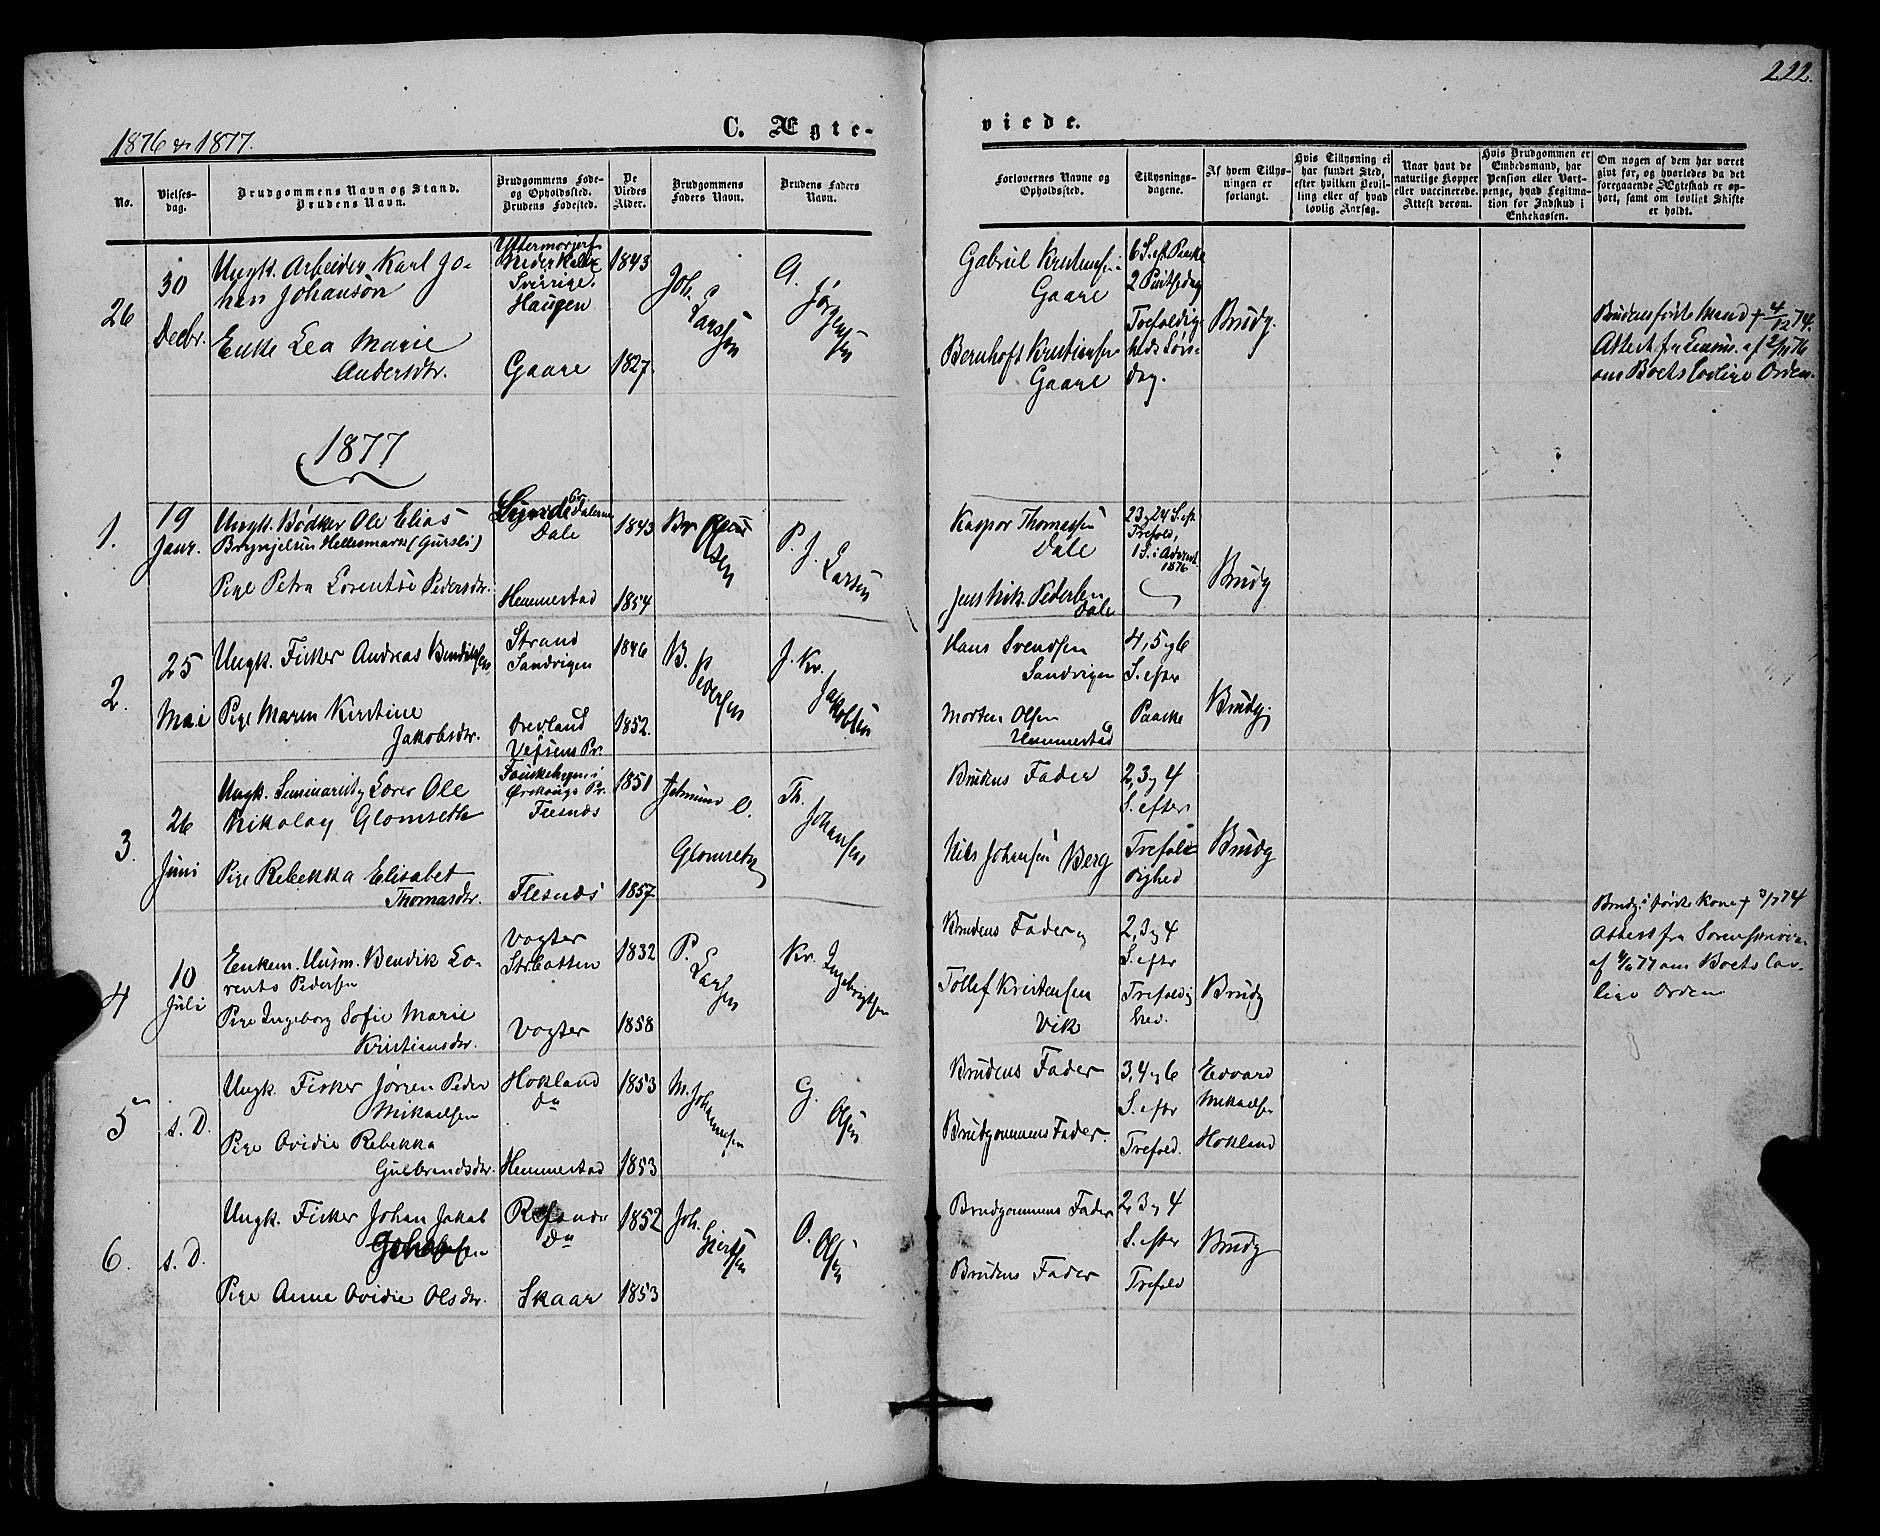 222.
1876 & 1877.
C. Ægte-
viede.
No.
Vielses-
dag.
Brudgommens Navn og Stand.
Brudens Navn.
Brudgommens Føde-
og Opholdsted.
Brudens Fødested.
De
Viedes
Alder.
Brudgommens
Faders Navn.
Brudens Faders
Navn.
Forlovernes Navne og
Opholdsted.
Tillysnings-
dagene.
Af hvem Tillys-
ningen er
forlangt.
Hvis Tillysning ei
har fundet Sted,
efter hvilken Bevil-
ling eller af hvad
lovlig Aarsag.
Naar havt de
naturlige Kopper
eller vaccinerede.
Attest derom.
Hvis Brudgommen er
Embedsmand, har
Pension eller Vart-
penge, hvad Legitima-
tion for Indskud i
Enkekassen.
Om nogen af dem har været
givt før, og hvorledes da det
foregaaende Ægteskab er op-
hørt, samt om lovligt Skifte
er holdt.
26
30
Decbr.
Ungk. Arbeider Karl Jo-
han Johanson
Enke Lea Marie
Andersdtr.
Sverrige.
Haugen
Gaare
1843
1827.
Joh.
Larsson
A.
Jørgensen
Gabriel Kristensen
Gaare
Bernhoft Kristiansen
Gaare
6 S. eft Paaske
2 Pintsedag
Trefoldig-
heds Søn-
dag.
Brudg.
Brudens første Mand + 4/12 74.
om Boets lovlige Orden.
1877
1.
19
Janr.
Ungk. Bødker Ole Elias
Brynjelsen Hellesmark (Gursli)
Pige Petra Lorentse Pedersdtr.
Dale
Hemmestad
1843
1854
Olsen
P. J. Larsen
Kaspor Thomassen
Dale
Jens Nik. Pedersen
Dale
23 og 24 S. eft
Trefold,
1 S. i Advent
1876
Brudg
2.
25
Mai
Ungk. Fisker Andreas Bendiktsen
Pige Maren Kirstine
Jakobsdtr.
Strand
Sandvigen
Drevland
Vefsens Pr.
1846
1852.
B.
Pedersen
J. Kr.
Jakobsen
Hans Svendsen
Sandvigen
Morten Olsen
Hemmestad
4, 5 og 6
S. efter
Paaske
Brudg.
3.
26
Juni
Ungk. Seminarist og Lærer Ole
Nikolay Glomseth
Pige Rebekka Elisabet
Thomasdtr.
Ørskougs Pr.
Flesnæs
Flesnæs
1851
1857
O.
Glomseth
Th.
Johansen
Brudens Fader
Nils Johansen Berg
2, 3 og 4
S. efter
Trefol-
dighed
Brudg
4
10
Juli
Enkem. Husm. Bendik Lo-
rents Pedersen
Pige Ingeborg Sofie Marie
Kristiansdtr.
Vogter
Strbotten
Vogter
1832
1858
P.
Larsen
Kr.
Ingebrigtsen
Brudens Fader
Tollef Kristensen
Vik
2, 3 og 4
S. efter
Trefoldig
hed.
Brudg
Brudg.s første Kone + 3/7 74
Attest fra Sorenskrive-
om Boets lov-
lige Orden
5
s. D.
Ungk. Fisker Jørgen Peder
Mikaelsen
Pige Ovidie Rebekka
Gulbrandsdtr.
Hokland
do
Hemmestad
1853
1853
M.
Johannesen
G.
Olsen
Brudens Fader
Brudgommens Fader.
3, 4 og 6
S. efter
Trefold.
Edvard
Mikaelsen
Hokland
6.
s. D.
Ungk. Fisker Johan Jakob
Johansen
Pige Anne Ovidie Olsdtr.
Refsnæs
do
Skaar
1852
1853
Joh.
O.
Olsen
Brudgommens Fader
Brudens Fader
2, 3 og 4
S. efter
Trefold
Brudg